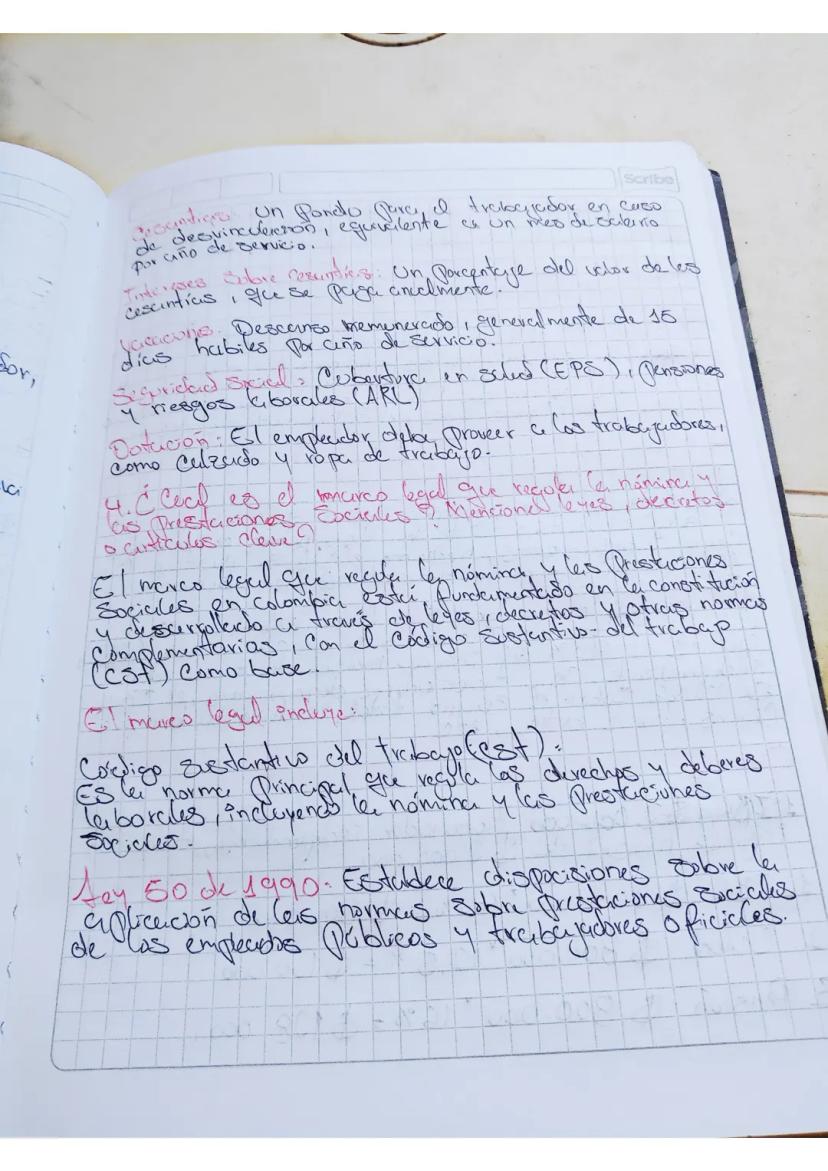 Scribe
Cesantías: Un fondo para el trabajador en caso
de desvinculación, equivalente a un mes de salario
por año de servicio.
Intereses sobre cesantías: Un porcentaje del valor de las
cesantías, que se paga anualmente.
Vacaciones: Descanso remunerado, generalmente de 15
días habiles por año de servicio.
Seguridad Social: Cobertura en salud (EPS), pensiones
y riesgos laborales (ARL)
Dotación: El empleador debe proveer a los trabajadores,
como calzado y ropa de trabajo.
4. ¿Cuál es el marco legal que regula la nómina y
las Prestaciones Sociales? Menciona leyes, decretos
o artículos clave?
El marco legal que regula la nómina y las Prestaciones
Sociales en colombia está fundamentado en la constitución
y desarrollado a través de leyes, decretos y otras normas
complementarias, con el código Sustantivo del trabajo
(CST) como base.
El marco legal incluye:
Código sustantivo del trabajo (CST):
Es la norma principal que regula los derechos y deberes
laborales, incluyendo la nómina y las Prestaciones
Sociales.
Ley 50 de 1990: Establece disposiciones sobre la
aplicación de las normas sobre prestaciones sociales
de los empleados Públicos y trabajadores oficiales.